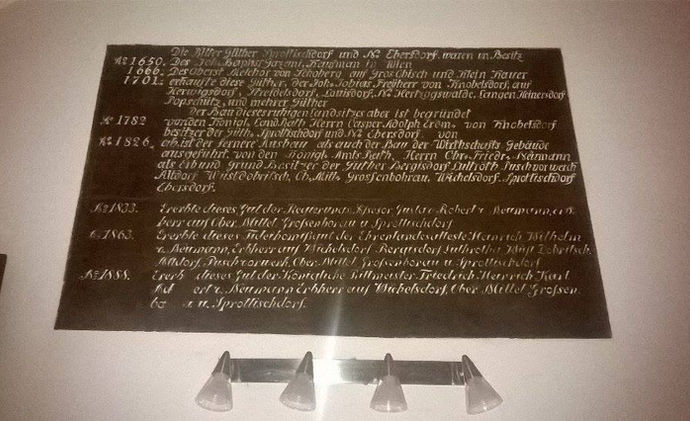 Die Ritter Güther Sprottischdorf und Nd. Ebersdorf waren in Besitz
Ao 1650. Des Joh. Baptist Kaufman in Wien
1666. Des Oberst Melchor von Schoberg auf Gros Obisch und Klein Kauer
1701. erkaufte diese Güther, der Joh. Tobias Freyherr von Knobelsdorf, auf
Herwigsdorf, Streidelsdorf, Louisdorf, Nd. Hertzogswalde, Langen Heinersdorf
Popschütz, und mehrer Güther
Der Bau dieses ruhigen Landsitzes aber ist begründet
Ao 1782 worden Königl. Landrath Herrn Casper Adolph Erdm. von Knobelsdorf
besitzer der Güth. Sprottischdorf und Nd. Ebersdorf von
Ao 1826. ab ist der fernere Ausbau als auch der Bau der Wirthschafts Gebäude
ausgeführt von den Königl. Amts Rath, Herrn Chr. Friedr. Neumann
als Erb und Grund Besitzer der Güther Bergisdorf Zullroth Puschvorwerk
Altdorf Wüstdobritsch, Ob. Mitl. Grossenbohrau, Wichelsdorf Sprottischdorf
Ebersdorf.
Ao 1833. Ererbte dieses Gut der Regierungs Assesor Gustav Robert v. Neumann, erb
herr auf Ober Mittel Grossenborau u Sprottischdorf
Ao 1863. Ererbte dieses Fideikomißgut der Ehrenlandesälteste Heinrich Wilhelm
v. Neumann, Erbherr auf Wichelsdorf Bergisdorf Zullroth Wüst Dobritsch
Altdorf, Puschvorwerk, Ober Mittel Grossenborau u Sprottischdorf
Ao 1888. Ererb dieses Gut der Königliche Rittmeister Friedrich Heinrich Karl
v. Neumann Erbherr auf Wichelsdorf, Ober Mittel Grossen
bo a u. Sprottischdorf.